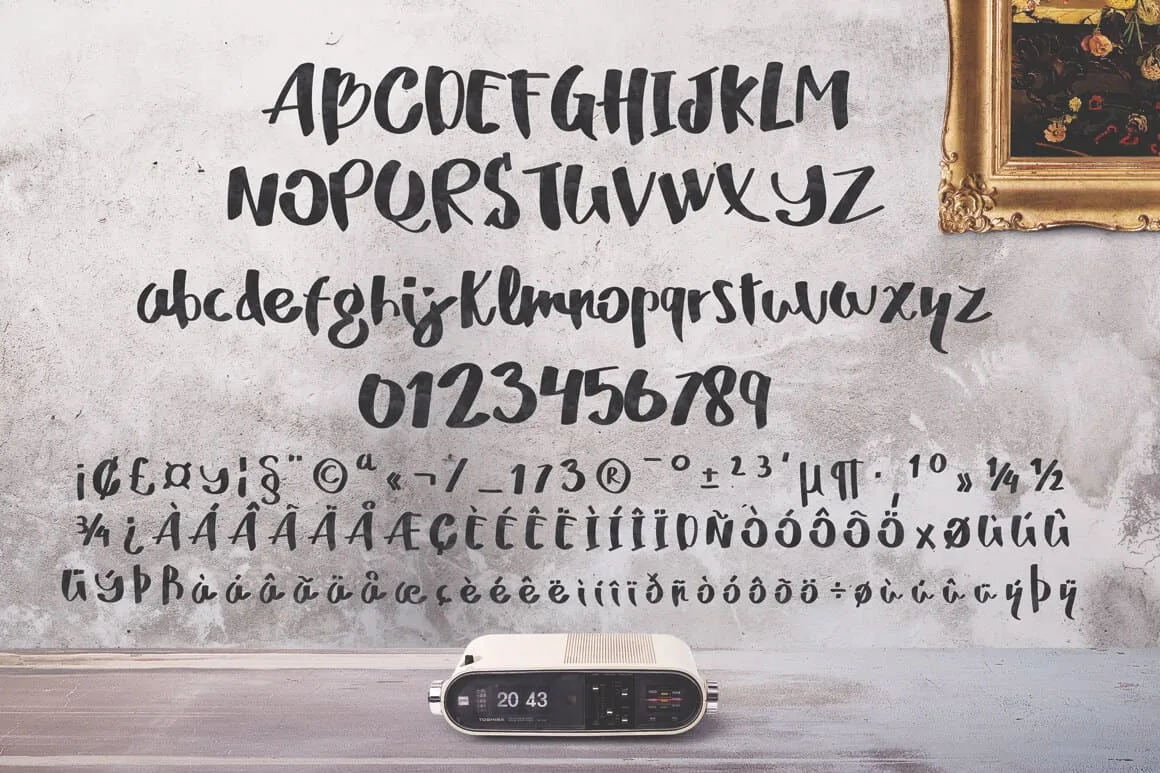 ABCDEFGHIJKLM
NOPQRSTUVWXYZ
abcdefghijklmnopqrstuvwxyz
0123456789
¡¢£¤y¦§¨©ª«¬/_173®¯°±²³´µ¶·¸¹º»¼½
¾¿ÀÁÂÃÄÅÆÇÈÉÊËÌÍÎÏDÑÒÓÔÕÖxØÙÚÛ
ÜÝÞßàáâãäåæçèéêëìíîïðñòóôõö÷øùúûüýþÿ
20 43
TOSHIBA